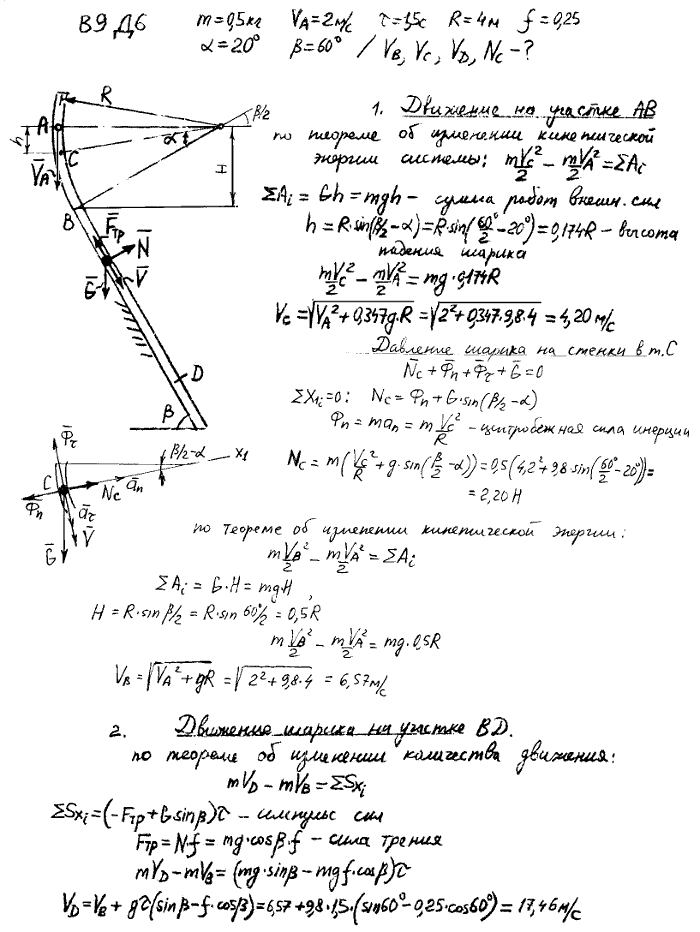 В9 Д6 m=0,5кг V_A=2м/с τ=1,5с R=4м f=0,25
α=20° β=60° / V_B, V_C, V_D, N_C-?
R
β/2
A
α
h
C
H
V̄_A
B
F̄_тр
N̄
V̄
Ḡ
D
β
1. Движение на участке АВ
по теореме об изменении кинетической
энергии системы: mV_C²/2 - mV_A²/2 = ΣA_i
ΣA_i = Gh = mgh - сумма работ внешн. сил
h = R·sin(β/2-α) = R·sin(60°/2-20°) = 0,174R - высота
падения шарика
mV_C²/2 - mV_A²/2 = mg·0,174R
V_C = √(V_A²+0,347gR) = √(2²+0,347·9,8·4) = 4,20 м/с
Давление шарика на стенки в т.С
N̄_C + Φ̄_п + Φ̄_τ + Ḡ = 0
ΣX_1i=0: N_C = Φ_п + G·sin(β/2-α)
Φ_п = ma_п = m V_C²/R - центробежная сила инерции
N_C = m(V_C²/R + g·sin(β/2-α)) = 0,5(4,2² + 9,8·sin(60°/2-20°)) =
= 2,20 Н
Φ̄_τ
β/2-α
x_1
C
N_C
ā_п
Φ̄_п
ā_τ
V̄
Ḡ
по теореме об изменении кинетической энергии:
mV_B²/2 - mV_A²/2 = ΣA_i
ΣA_i = G·H = mgH,
H = R·sin β/2 = R·sin 60°/2 = 0,5R
mV_B²/2 - mV_A²/2 = mg·0,5R
V_B = √(V_A²+gR) = √(2²+9,8·4) = 6,57м/с
2. Движение шарика на участке BD.
по теореме об изменении количества движения:
mV_D - mV_B = ΣS_xi
ΣS_xi = (-F_тр+G sinβ)τ - импульс сил
F_тр = N·f = mg·cosβ·f - сила трения
mV_D - mV_B = (mg·sinβ - mgf·cosβ)τ
V_D = V_B + gτ(sinβ-f·cosβ) = 6,57 + 9,8·1,5·(sin60°-0,25·cos60°) = 17,46 м/с